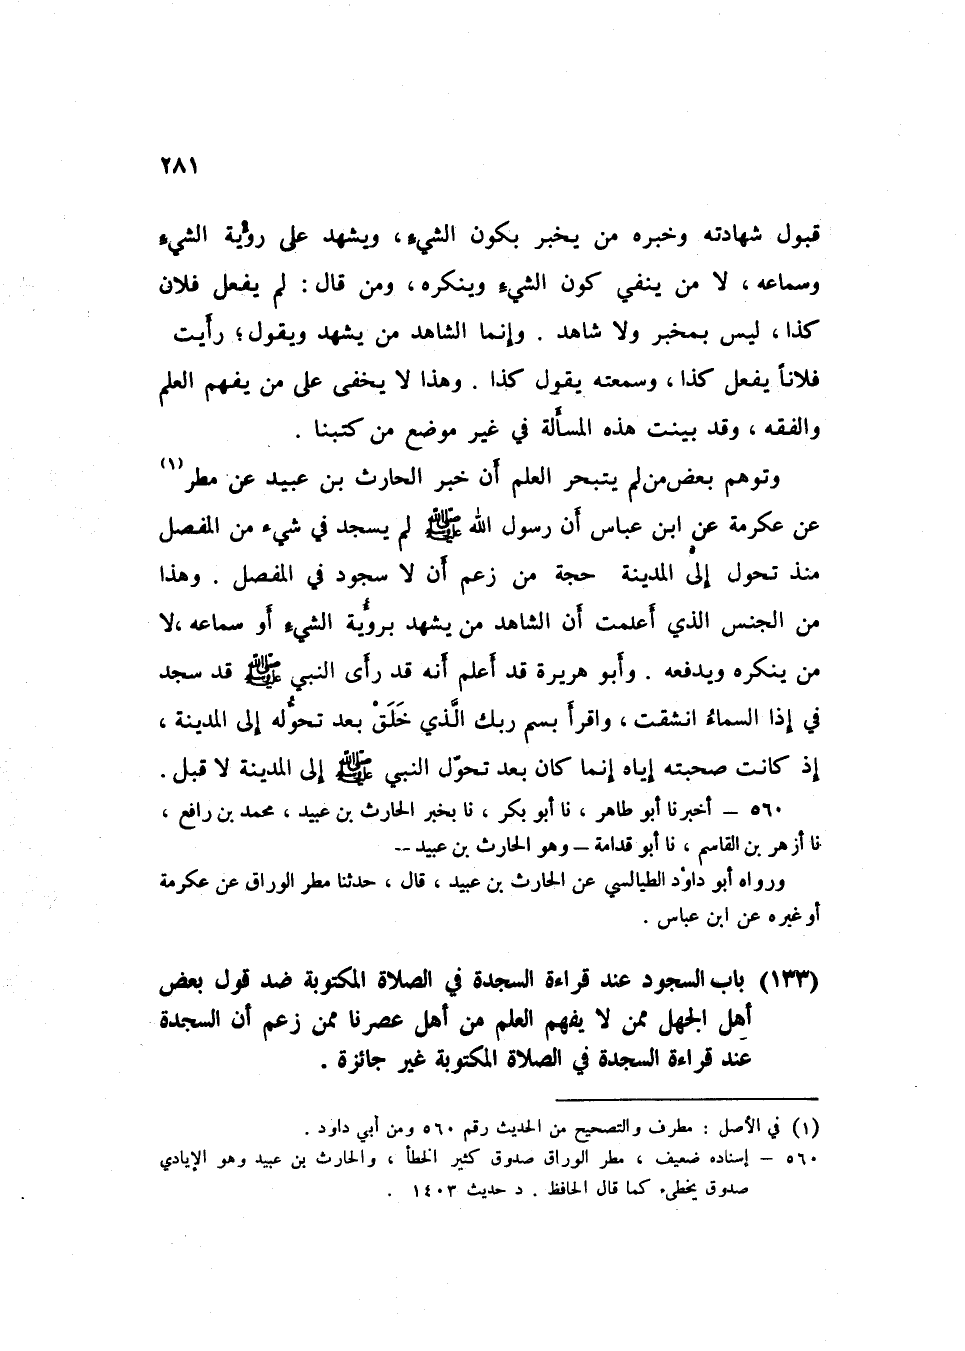 ٢٨١
قبول شهادته وخبره من يخبر بكون الشيء، ويشهد على رؤية الشيء
وسماعه، لا من ينفي كون الشيء وينكره، ومن قال: لم يفعل فلان
كذا، ليس بمخبر ولا شاهد. وإنما الشاهد من يشهد ويقول؛ رأيت
فلاناً يفعل كذا، وسمعته يقول كذا. وهذا لا يخفى على من يفهم العلم
والفقه، وقد بينت هذه المسألة في غير موضع من كتبنا.
وتوهم بعض من لم يتبحر العلم أن خبر الحارث بن عبيد عن مطر(١)
عن عكرمة عن ابن عباس أن رسول الله ﷺ لم يسجد في شيء من المفصل
منذ تحول إلى المدينة حجة من زعم أن لا سجود في المفصل. وهذا
من الجنس الذي أعلمت أن الشاهد من يشهد برؤية الشيء أو سماعه، لا
من ينكره ويدفعه. وأبو هريرة قد أعلم أنه قد رأى النبي ﷺ قد سجد
في إذا السماءُ انشقت، واقرأ بسم ربك الَّذي خَلَقْ بعد تحوُّله إلى المدينة،
إذ كانت صحبته إياه إنما كان بعد تحوّل النبي ﷺ إلى المدينة لا قبل.
٥٦٠ – أخبرنا أبو طاهر، نا أبو بكر، نا بخبر الحارث بن عبيد، محمد بن رافع،
نا أزهر بن القاسم، نا أبو قدامة – وهو الحارث بن عبيد --
ورواه أبو داود الطيالسي عن الحارث بن عبيد، قال، حدثنا مطر الوراق عن عكرمة
أو غيره عن ابن عباس.
(١٣٣) باب السجود عند قراءة السجدة في الصلاة المكتوبة ضد قول بعض
أهل الجهل ممن لا يفهم العلم من أهل عصرنا ممن زعم أن السجدة
عند قراءة السجدة في الصلاة المكتوبة غير جائزة.
(١) في الأصل: مطرف والتصحيح من الحديث رقم ٥٦٠ ومن أبي داود.
٥٦٠ – إسناده ضعيف، مطر الوراق صدوق كثير الخطأ، والحارث بن عبيد وهو الإيادي
صدوق يخطىء كما قال الحافظ. د حديث ١٤٠٣.